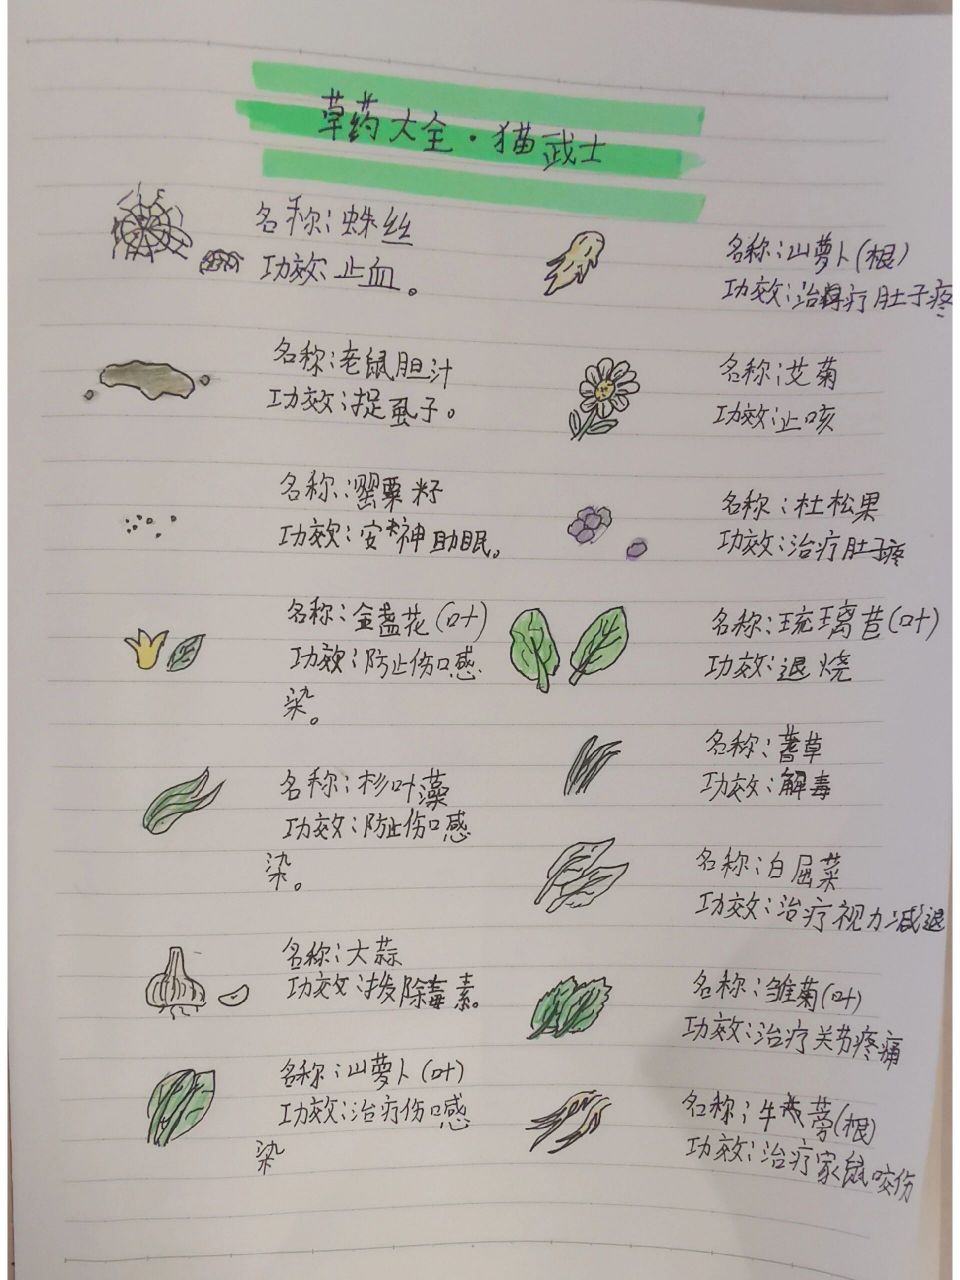 草药大全·猫武士
名称:蛛丝
功效:止血。
名称:老鼠胆汁
功效:捉虱子。
名称:罂粟籽
功效:安神助眠。
名称:金盏花(叶)
功效:防止伤口感
染。
名称:杉叶藻
功效:防止伤口感
染。
名称:大蒜
功效:拨除毒素。
名称:山萝卜(叶)
功效:治疗伤口感
染
名称:山萝卜(根)
功效:治疗肚子疼
名称:艾菊
功效:止咳
名称:杜松果
功效:治疗肚子疼
名称:琉璃苣(叶)
功效:退烧
名称:蓍草
功效:解毒
名称:白屈菜
功效:治疗视力减退
名称:雏菊(叶)
功效:治疗关节疼痛
名称:牛蒡(根)
功效:治疗家鼠咬伤